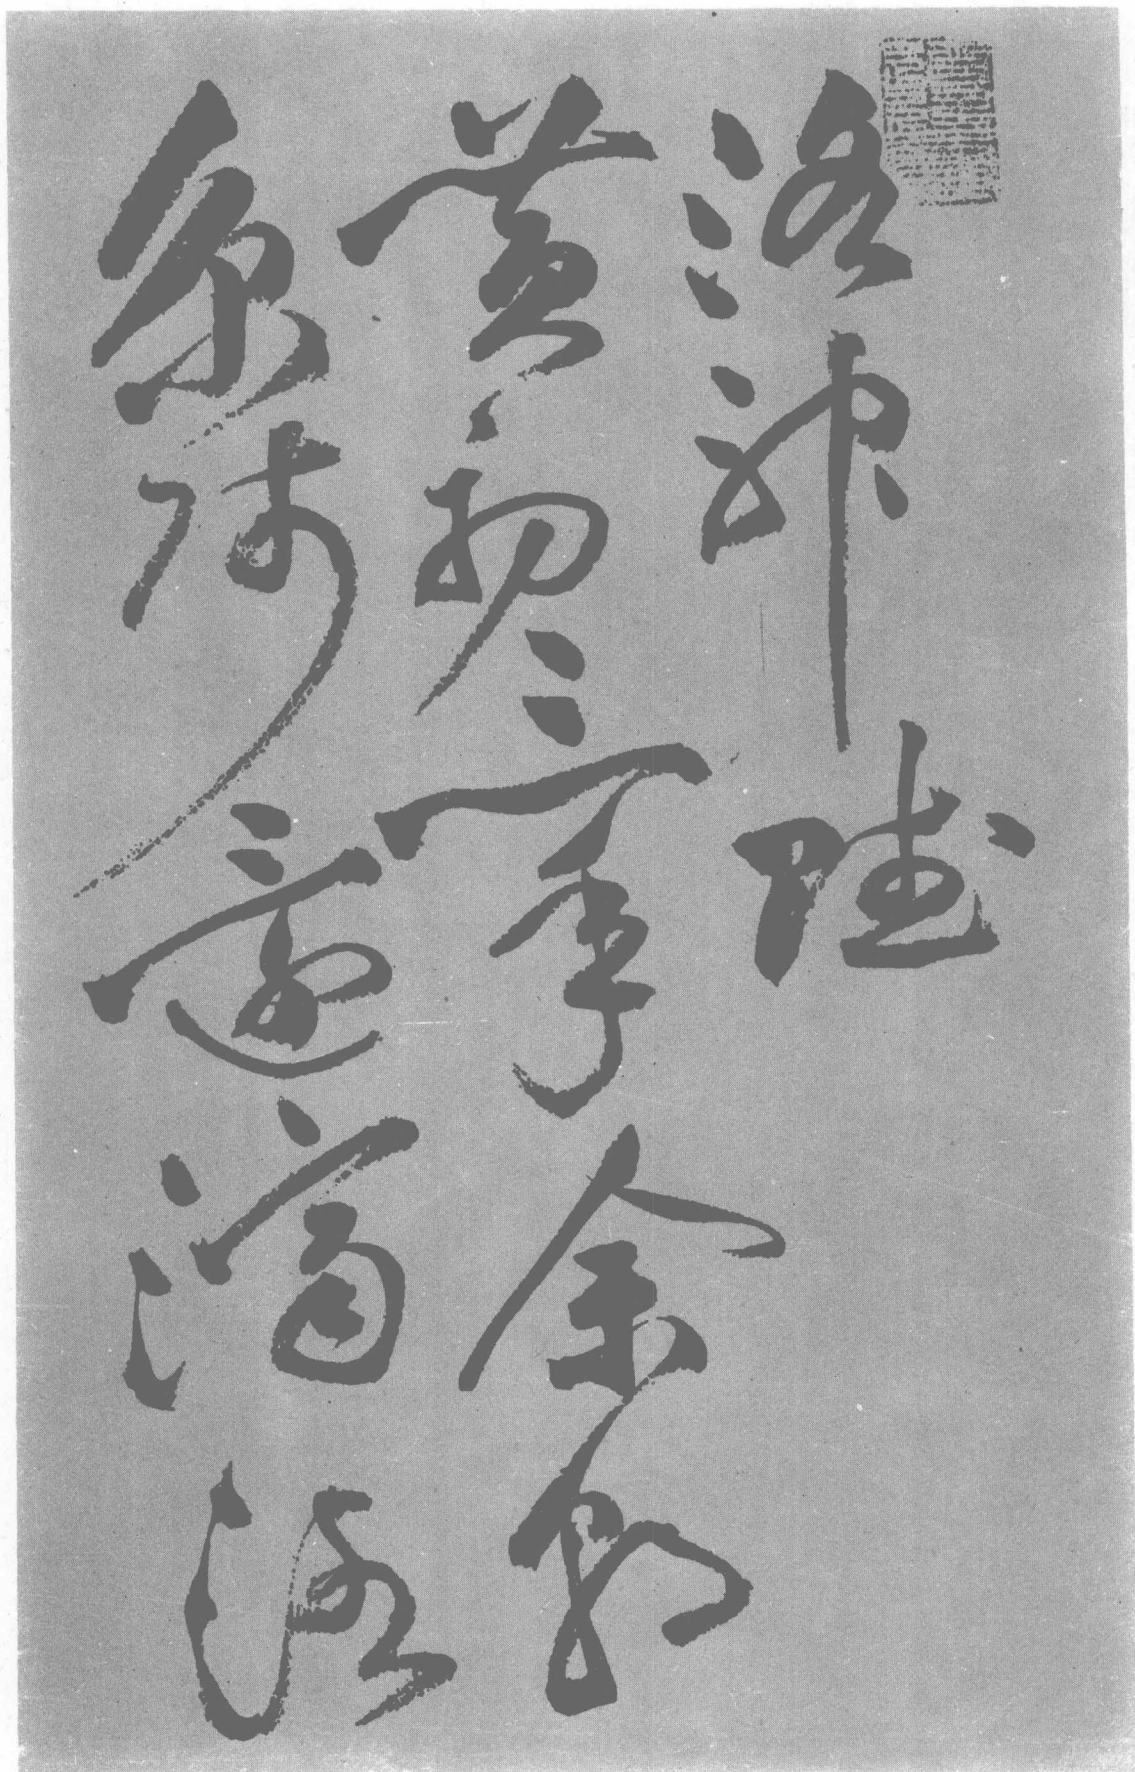 洛神賦
黃初三年余朝
京師還濟洛